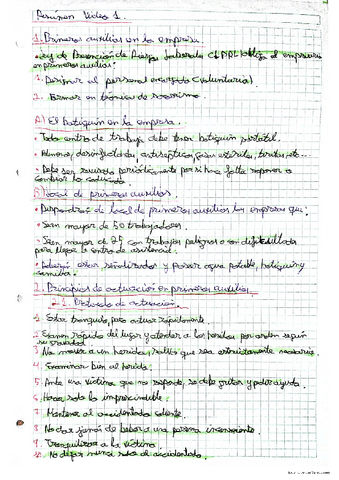 Resumen Video 1.
1. Primeros auxilios en la empresa.
• Ley de Prevención de Riesgos Laborales (LPRL) obliga al empresario
en primeros auxilios:
1. Designar al personal encargado (voluntaria)
2. Formar en técnicas de socorrismo
A) El botiquín en la empresa.
• Todo centro de trabajo debe tener botiquín portátil.
• desinfectantes, antisépticos, gasas estériles, tiritas, etc...
• Debe ser revisado periódicamente por si hace falta reponer o
cambiar lo caducado.
B) Local de primeros auxilios.
• Dispondrán de local de primeros auxilios las empresas que:
- Sean mayor de 50 trabajadores.
- Sean mayor de 25 con trabajos peligrosos o con dificultades
para llegar la centro de asistencia.
• Deberá estar señalizados y poseer agua potable, botiquín y
camilla.
2. Principios de actuación en primeros auxilios.
1. Protocolo de actuación.
1. Estar tranquilo, pero actuar rápidamente.
2. Examen rápido del lugar y atender a los heridos por orden según
su gravedad
3. No mover a un herido, salvo que sea estrictamente necesario.
4. Examinar bien al herido.
5. Ante una víctima que no responde, se debe gritar y pedir ayuda.
6. Hacer solo lo imprescindible.
7. Mantener al accidentado caliente.
8. No dar jamás de beber a una persona inconsciente.
9. Tranquilizar a la víctima.
10. No dejar nunca solo al accidentado.